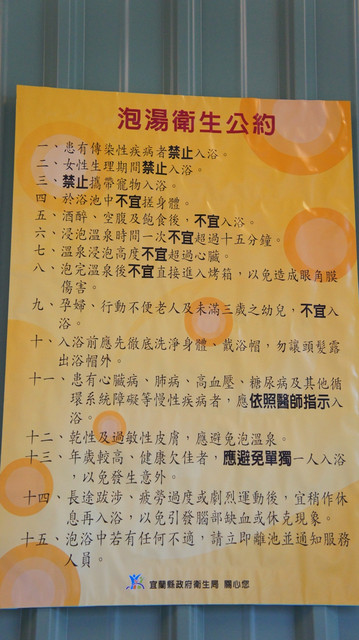 泡湯衛生公約
一、患有傳染性疾病者禁止入浴。
二、女性生理期間禁止入浴。
三、禁止攜帶寵物入浴。
四、於浴池中不宜搓身體。
五、酒醉、空腹及飽食後，不宜入浴。
六、浸泡溫泉時間一次不宜超過十五分鐘。
七、溫泉浸泡高度不宜超過心臟。
八、泡完溫泉後不宜直接進入烤箱，以免造成眼角膜
傷害。
九、孕婦、行動不便老人及未滿三歲之幼兒，不宜入
浴。
十、入浴前應先徹底洗淨身體、戴浴帽，勿讓頭髮露
出浴帽外。
十一、患有心臟病、肺病、高血壓、糖尿病及其他循
環系統障礙等慢性疾病者，應依照醫師指示入
浴。
十二、乾性及過敏性皮膚，應避免泡溫泉。
十三、年歲較高、健康欠佳者，應避免單獨一人入浴
，以免發生意外。
十四、長途跋涉、疲勞過度或劇烈運動後，宜稍作休
息再入浴，以免引發腦部缺血或休克現象。
十五、泡浴中若有任何不適，請立即離池並通知服務
人員。
宜蘭縣政府衛生局 關心您